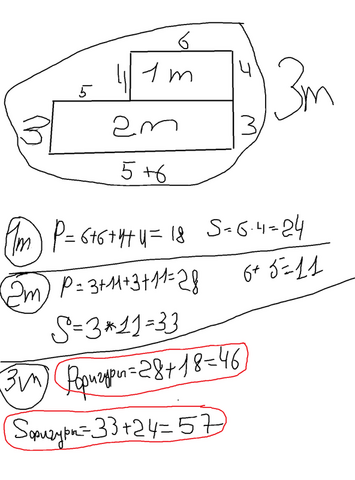 6
4 1m 4 3m
5
3 2m 3
5+6
1m P=6+6+4+4=18 S=6·4=24
2m P=3+11+3+11=28 6+5=11
S=3*11=33
3m Pфигуры=28+18=46
Sфигуры=33+24=57